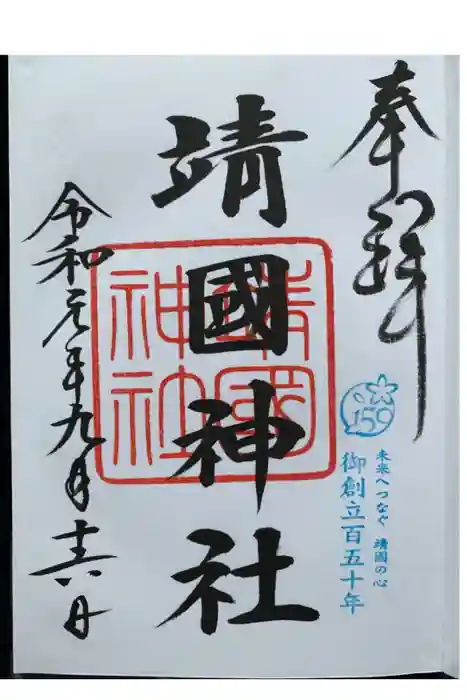 奉拝
150
未来へつなぐ　靖國の心
御創立百五十年
靖國神社
靖國
神社
令和元年九月十六日